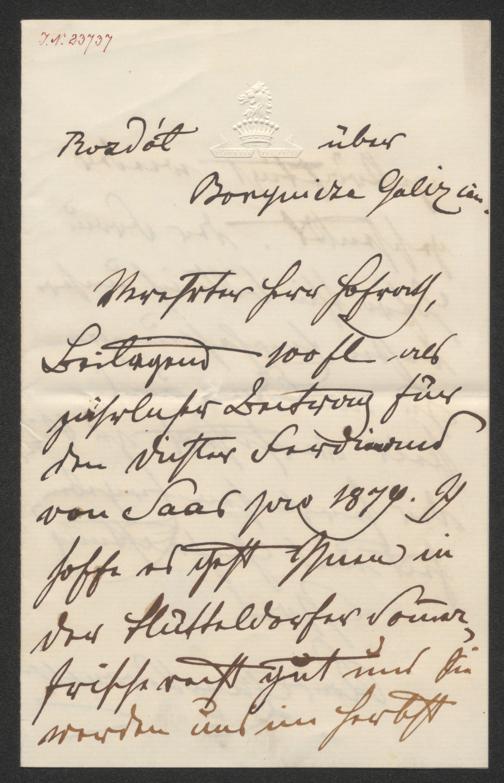 J.N. 23737
Rozdót über
Borynicze Galizien.
Verehrter Herr Hofrath,
Beiliegend 100 fl als
jährlicher Beitrag für
den Dichter Ferdinand
von Saar pro 1879. Ich
hoffe es geht Ihnen in
der Hütteldorfer Sommer
frische recht gut und Sie
werden uns im Herbst